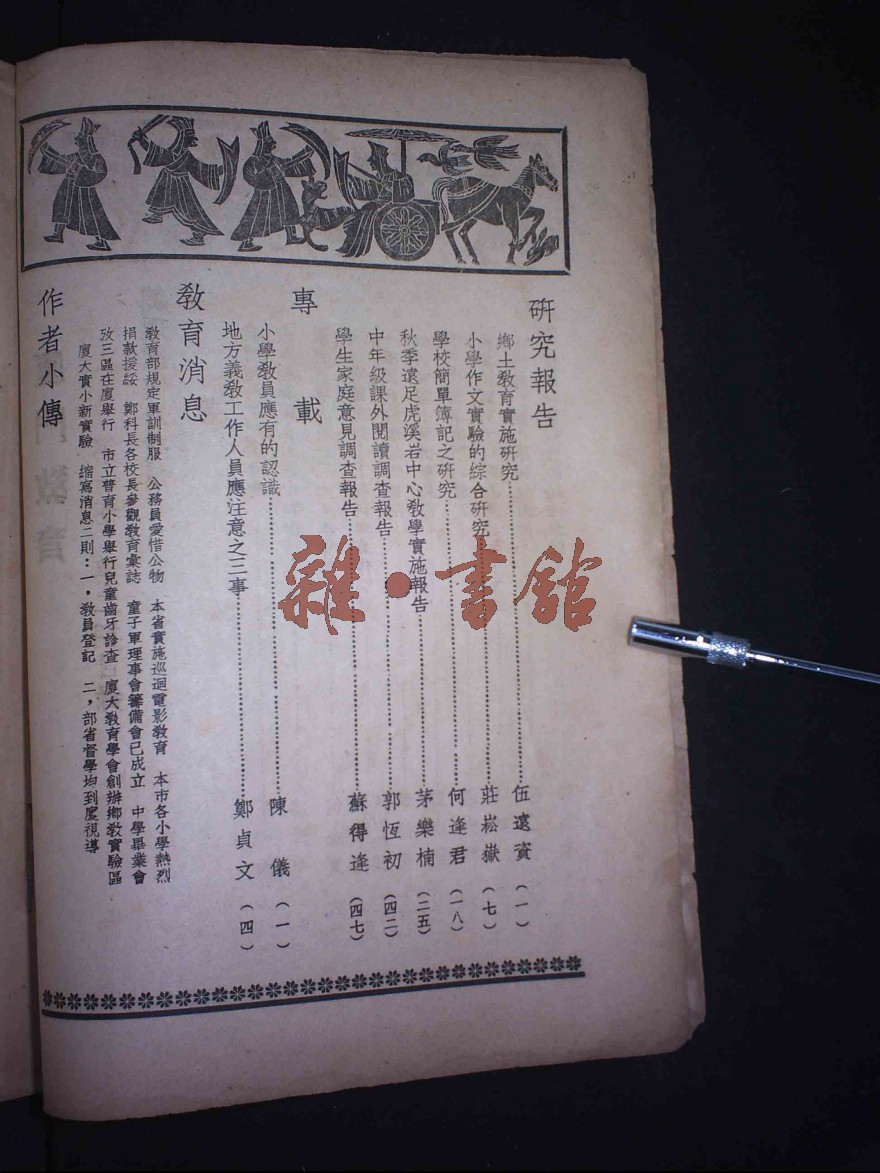 研究報告
鄉土教育實施研究 伍遠資（一）
小學作文實驗的綜合研究 莊崧嶽（七）
學校簡單簿記之研究 何逢君（一八）
秋季遠足虎溪岩中心教學實施報告 茅樂楠（二五）
中年級課外閱讀調查報告 郭恆初（四二）
學生家庭意見調查報告 蘇得逢（四七）
專載
小學教員應有的認識 陳儀（一）
地方義教工作人員應注意之三事 鄭貞文（四）
教育消息
教育部規定軍訓制服 公務員愛惜公物 本省實施巡迴電影教育 本市各小學熱烈
捐款援綏 鄭科長各校長參觀教育彙誌 童子軍理事會籌備會已成立 中學畢業會
攷三區在廈舉行 市立普育小學舉行兒童齒牙診查 廈大教育學會創辦鄉教實驗區
廈大實小新實驗 縮寫消息二則：一，教員登記 二，部省督學均到廈視導
作者小傳
雜·書館